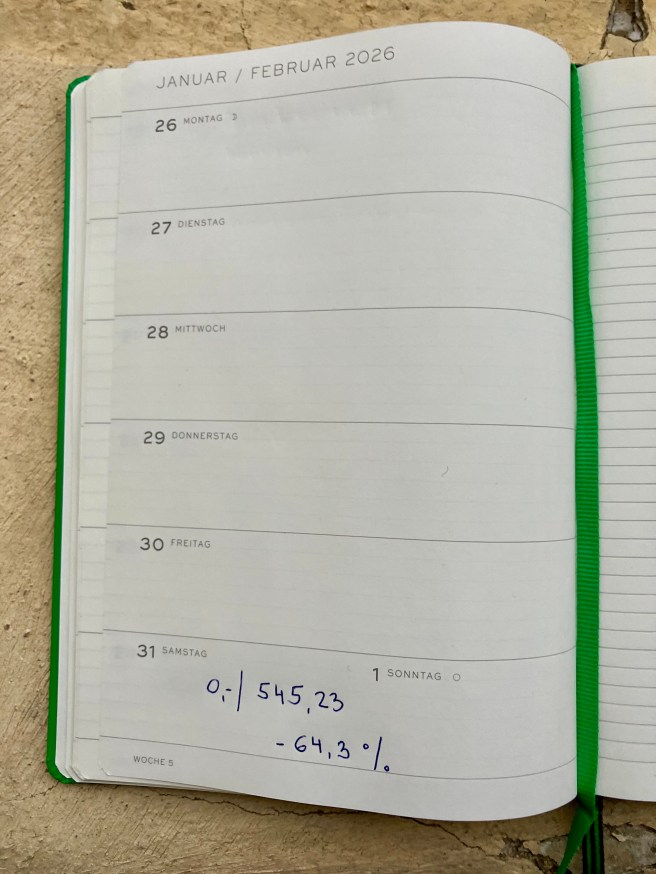 JANUAR / FEBRUAR 2026
26 MONTAG
27 DIENSTAG
28 MITTWOCH
29 DONNERSTAG
30 FREITAG
31 SAMSTAG
1 SONNTAG
0,-/ 545,23
-64,3 %
WOCHE 5